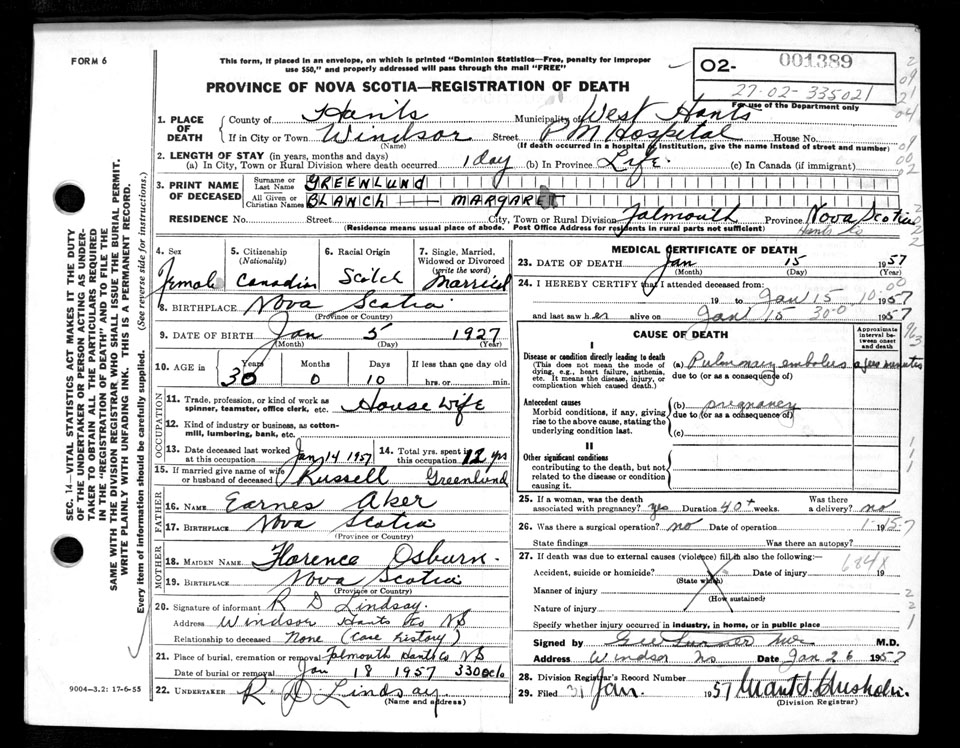 FORM 6
This form, if placed in an envelope, on which is printed "Dominion Statistics—Free, penalty for improper
use $50," and properly addressed will pass through the mail "FREE"
02- 001389
27-02-335021
For use of the Department only
PROVINCE OF NOVA SCOTIA—REGISTRATION OF DEATH
1. PLACE OF DEATH County of Hants Municipality of West Hants
If in City or Town Windsor Street P M Hospital House No.
(Name) (If death occurred in a hospital or institution, give the name instead of street and number)
2. LENGTH OF STAY (in years, months and days)
(a) In City, Town or Rural Division where death occurred 1 day (b) In Province Life. (c) In Canada (if immigrant)
3. PRINT NAME OF DECEASED Surname or Last Name GREENLUND
All Given or Christian Names BLANCH — MARGARET
RESIDENCE No. Street City, Town or Rural Division Falmouth Province Nova Scotia
Hants Co
(Residence means usual place of abode. Post Office Address for residents in rural parts not sufficient)
4. Sex Female
5. Citizenship (Nationality) Canadian
6. Racial Origin Scotch
7. Single, Married, Widowed or Divorced (write the word) Married
8. BIRTHPLACE Nova Scotia
(Province or Country)
9. DATE OF BIRTH Jan 5 1927
(Month) (Day) (Year)
10. AGE in Years 30 Months 0 Days 10 If less than one day old hrs. or min.
OCCUPATION
11. Trade, profession, or kind of work as spinner, teamster, office clerk, etc. House Wife
12. Kind of industry or business, as cotton-mill, lumbering, bank, etc.
13. Date deceased last worked at this occupation Jan 14 1957
14. Total yrs. spent in this occupation 12 yrs
15. If married give name of wife or husband of deceased Russell Greenlund
FATHER
16. NAME Earnes Aker
17. BIRTHPLACE Nova Scotia
(Province or Country)
MOTHER
18. MAIDEN NAME Florence Osburn.
19. BIRTHPLACE Nova Scotia
(Province or Country)
20. Signature of informant R D Lindsay.
Address Windsor Hants Co NS
Relationship to deceased None (Case history)
21. Place of burial, cremation or removal Falmouth Hants Co NS
Date of burial or removal Jan 18 1957 330 oclo
22. UNDERTAKER R. D Lindsay.
(Name and address)
9004—3.2: 17-6-55
MEDICAL CERTIFICATE OF DEATH
23. DATE OF DEATH Jan 15 1957
(Month) (Day) (Year)
24. I HEREBY CERTIFY that I attended deceased from:
19 to Jan 15 10.00 1957
and last saw her alive on Jan 15 1957
CAUSE OF DEATH
Approximate interval between onset and death
I
Disease or condition directly leading to death
(This does not mean the mode of dying, e.g., heart failure, asthenia, etc. It means the disease, injury, or complication which caused death.)
(a) Pulmonary embolus a few minutes
due to (or as a consequence of)
Antecedent causes
Morbid conditions, if any, giving rise to the above cause, stating the underlying condition last.
(b) pregnancy
due to (or as a consequence of)
(c)
II
Other significant conditions
contributing to the death, but not related to the disease or condition causing it.
25. If a woman, was the death associated with pregnancy? yes Duration 40+ weeks. Was there a delivery? no
26. Was there a surgical operation? no Date of operation 19
State findings Was there an autopsy?
27. If death was due to external causes (violence) fill in also the following: 684X
Accident, suicide or homicide? Date of injury 19
(State which)
Manner of injury
(How sustained)
Nature of injury
Specify whether injury occurred in industry, in home, or in public place
Signed by M.D.
Address Windsor NS Date Jan 26 1957
28. Division Registrar's Record Number
29. Filed 31 Jan. 1957
(Division Registrar)
SEC. 14—VITAL STATISTICS ACT MAKES IT THE DUTY
OF THE UNDERTAKER OR PERSON ACTING AS UNDER-
TAKER TO OBTAIN ALL THE PARTICULARS REQUIRED
IN THE "REGISTRATION OF DEATH" AND TO FILE THE
SAME WITH THE DIVISION REGISTRAR WHO SHALL ISSUE THE BURIAL PERMIT.
WRITE PLAINLY WITH UNFADING INK. THIS IS A PERMANENT RECORD.
Every item of information should be carefully supplied. (See reverse side for instructions.)